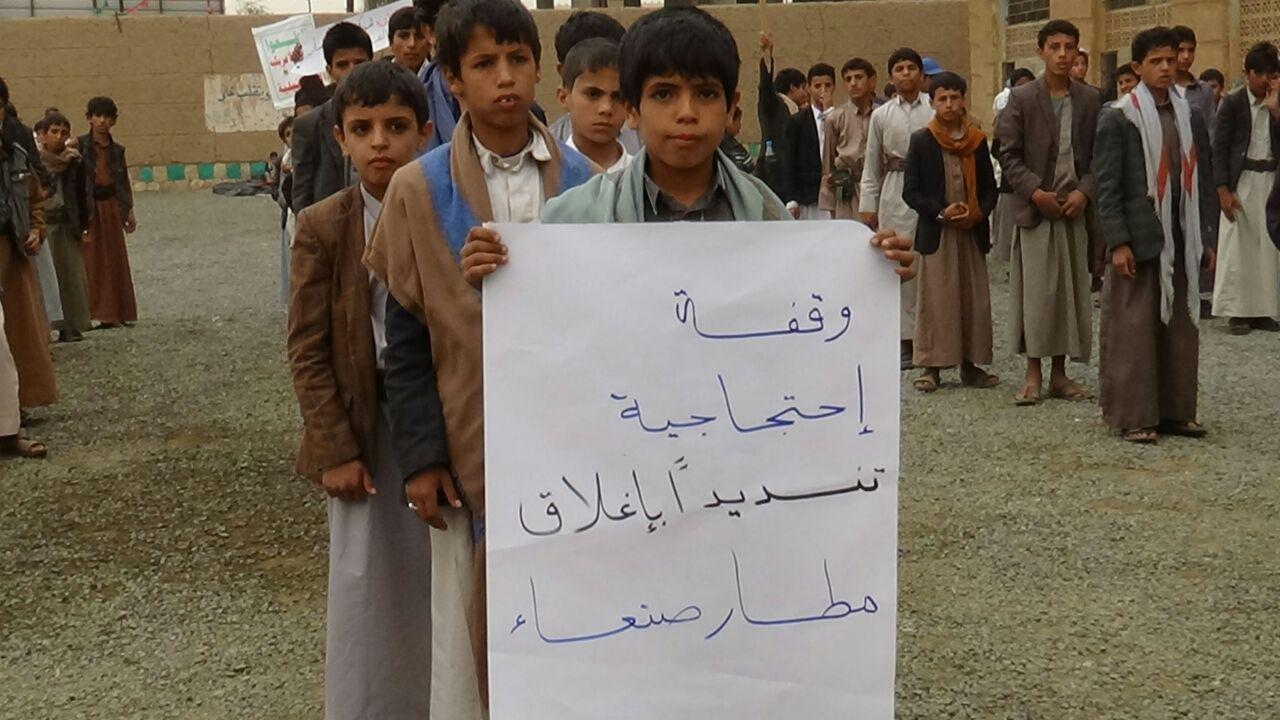 وقفة
إحتجاجية
تنديداً بإغلاق
مطار صنعاء